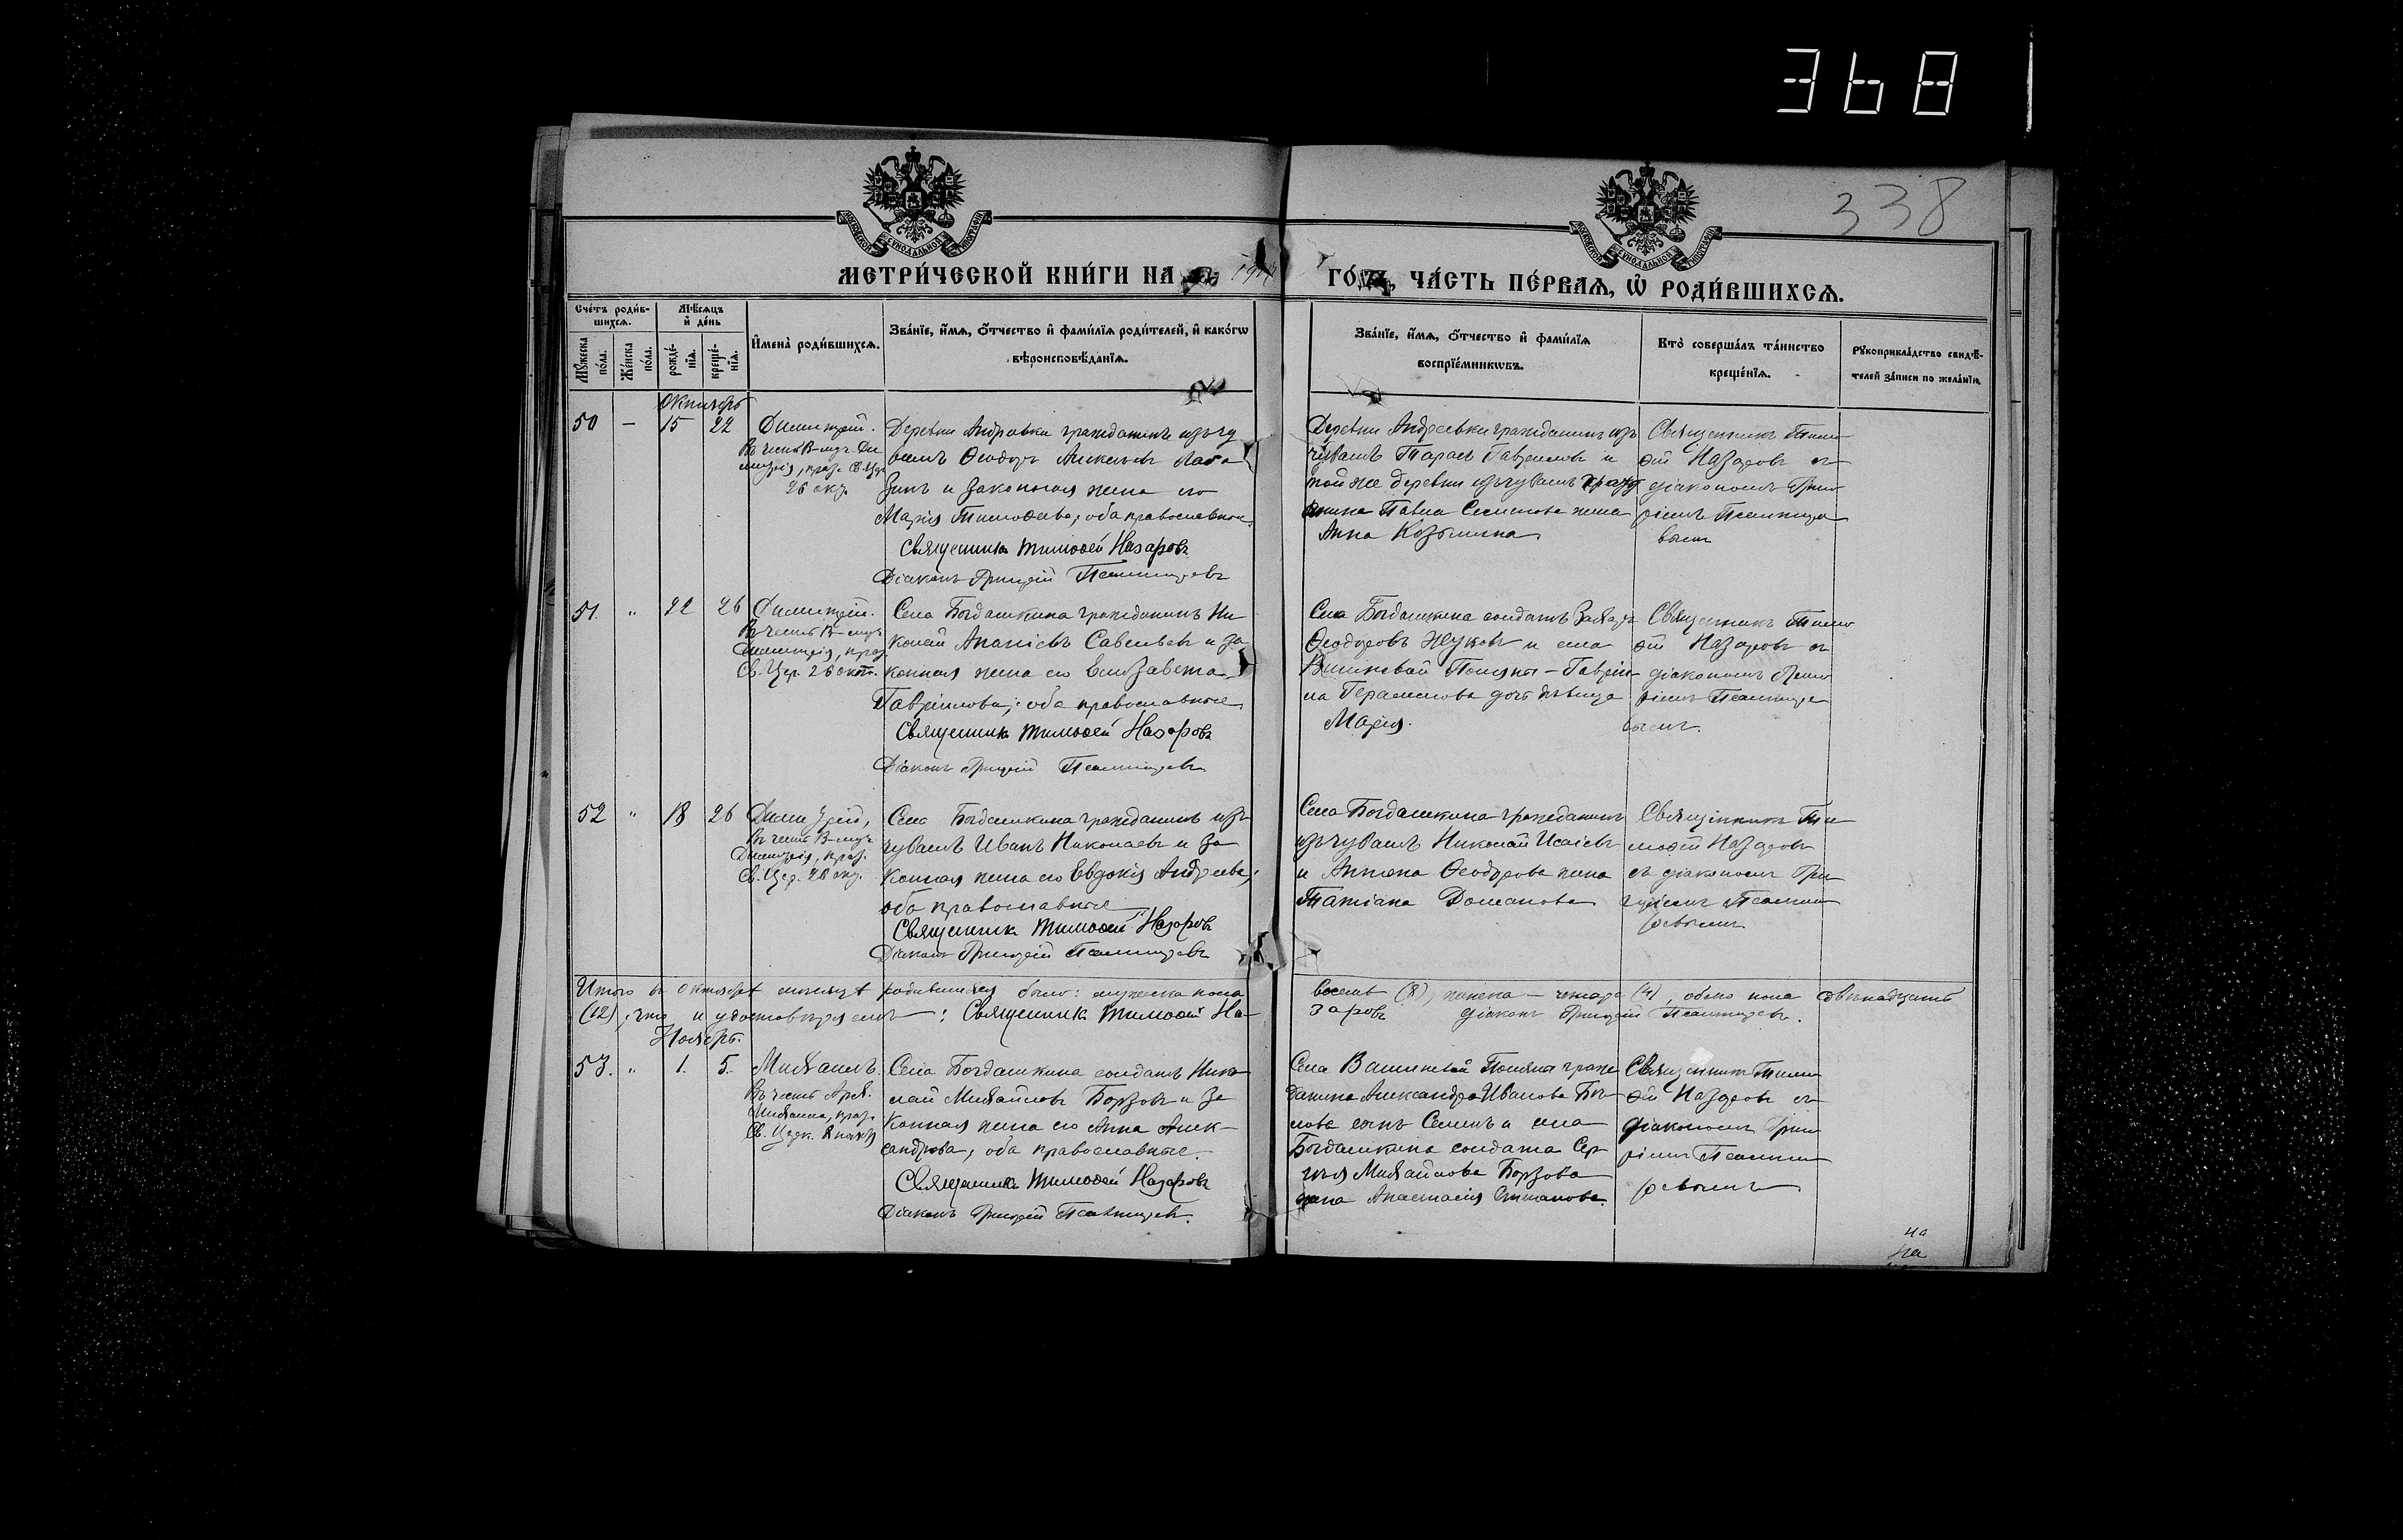 368
338
МЕТРИ́ЧЕСКОЙ КНИ́ГИ НА
ГО́ ЧА́СТЬ ПЕ́РВАѦ, Ѽ РОДИ́ВШИХСѦ.
Сче́тъ роди́в-
шихсѧ.
Мѣ́сѧцъ
и҆ де́нь
Мꙋ́жеска
по́ла.
Же́нска
по́ла.
рожде́-
нїѧ.
креще́-
нїѧ.
И҆мена̀ роди́вшихсѧ.
Зва́нїе, и҆́мѧ, ѻ҆́тчество и҆ фами́лїѧ роди́телей, и҆ како́гѡ
вѣроисповѣ́данїѧ.
Зва́нїе, и҆́мѧ, ѻ҆́тчество и҆ фами́лїѧ
воспрїе́мникѡвъ.
Кто̀ соверша́лъ та́инство
креще́нїѧ.
Рꙋкоприкла́дство свидѣ́-
телей за́писи по жела́нїю.
Октябрь
50 – 15 22
Димитрій.
Въ честь В-муч. Ди
митрія, праз. Св. Цер.
26 окт.
Деревни Андреевки гражданинъ изъ чу
вашъ Ѳеодоръ Алексѣевъ
и законная жена его
Марія Тимоѳеева; оба православные.
Священникъ Тимоѳей Назаровъ
Діаконъ Григорій Псалтыревъ
Деревни Андреевки гражданинъ изъ
чувашъ Тарасъ Гавріиловъ и
той же деревни изъ чувашъ гражд
анина Павла Семенова жена
Анна Козьмина
Священникъ Тимо
ѳей Назаровъ съ
діакономъ Григо
ріемъ Псалтыре
вымъ
51. " 22 26
Димитрій.
Въ честь В-муч.
Димитрія, праз.
Св. Цер. 26 окт.
Села Богдашкина гражданинъ Ни
колай Ананіевъ Савельевъ и за
конная жена его Елизавета
Гавріилова; оба православные
Священникъ Тимоѳей Назаровъ
Діаконъ Григорій Псалтыревъ
Села Богдашкина солдатъ Захаръ
Ѳеодоровъ Жуковъ и села
Поляны – Гаврiи-
ла Герасимова дочь дѣвица
Марія.
Священникъ Тимо
ѳей Назаровъ съ
діакономъ Григо
ріемъ Псалтыре
вымъ.
52 " 18 26
Димитрій,
Въ честь В-муч.
Димитрія, праз.
Св. Цер. 26 окт.
Села Богдашкина гражданинъ изъ
чувашъ Иванъ Николаевъ и за
конная жена его Евдокія Андреева;
оба православные
Священникъ Тимоѳей Назаровъ
Діаконъ Григорій Псалтыревъ
Села Богдашкина гражданинъ
изъ чувашъ Николай Исаіевъ
и Антона Ѳеодорова жена
Татіана Романова
Священникъ Ти
моѳей Назаровъ
съ діакономъ Гри
горіемъ Псалты
ревымъ
Итого въ октябрѣ мѣсяцѣ родившихся было: мужеска пола восемь (8), женска – четыре (4), обоего пола двѣнадцать
(12), что и удостовѣряемъ: Священникъ Тимоѳей На-
заровъ діаконъ Григорій Псалтыревъ.
Ноябрь.
53. " 1. 5.
Михаилъ.
Въ честь Арх.
Михаила, праз.
Св. Церк. 8 нояб
Села Богдашкина солдатъ Нико
лай Михайловъ Борзовъ и за
конная жена его Анна Алек-
сандрова; оба православные.
Священникъ Тимоѳей Назаровъ
Діаконъ Григорій Псалтыревъ.
Села Поляны граж
данина Александра Иванова Бѣ
лова сынъ Семенъ и села
Богдашкина солдата Сер
гѣя Михайлова Борзова
жена Анастасія Степанова.
Священникъ Тимо
ѳей Назаровъ съ
діакономъ Григо
ріемъ Псалты
ревымъ
на
на